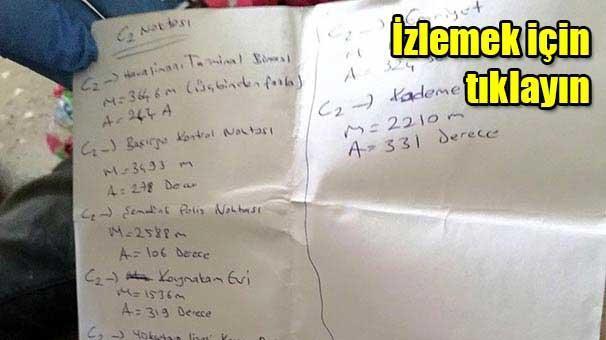 C2 Noktası
C2 → Havalimanı Terminal Binası
M = 3646 m
A = 244 A
C2 → Kontrol Noktası
M = 3493 m
A = 278
C2 → Şemdinli Polis Noktası
M = 2588 m
A = 106 Derece
C2 → Kaymakam Evi
M = 1536 m
A = 319 Derece
C2 →
C2 →
M
A = 324
C2 → Kademe
M = 2210 m
A = 331 Derece
İzlemek için
tıklayın